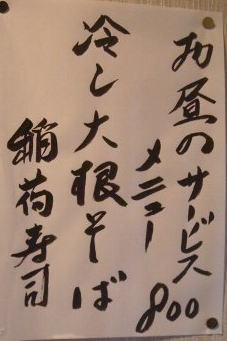 お昼のサービス
メニュー 800
冷し大根そば
稲荷寿司